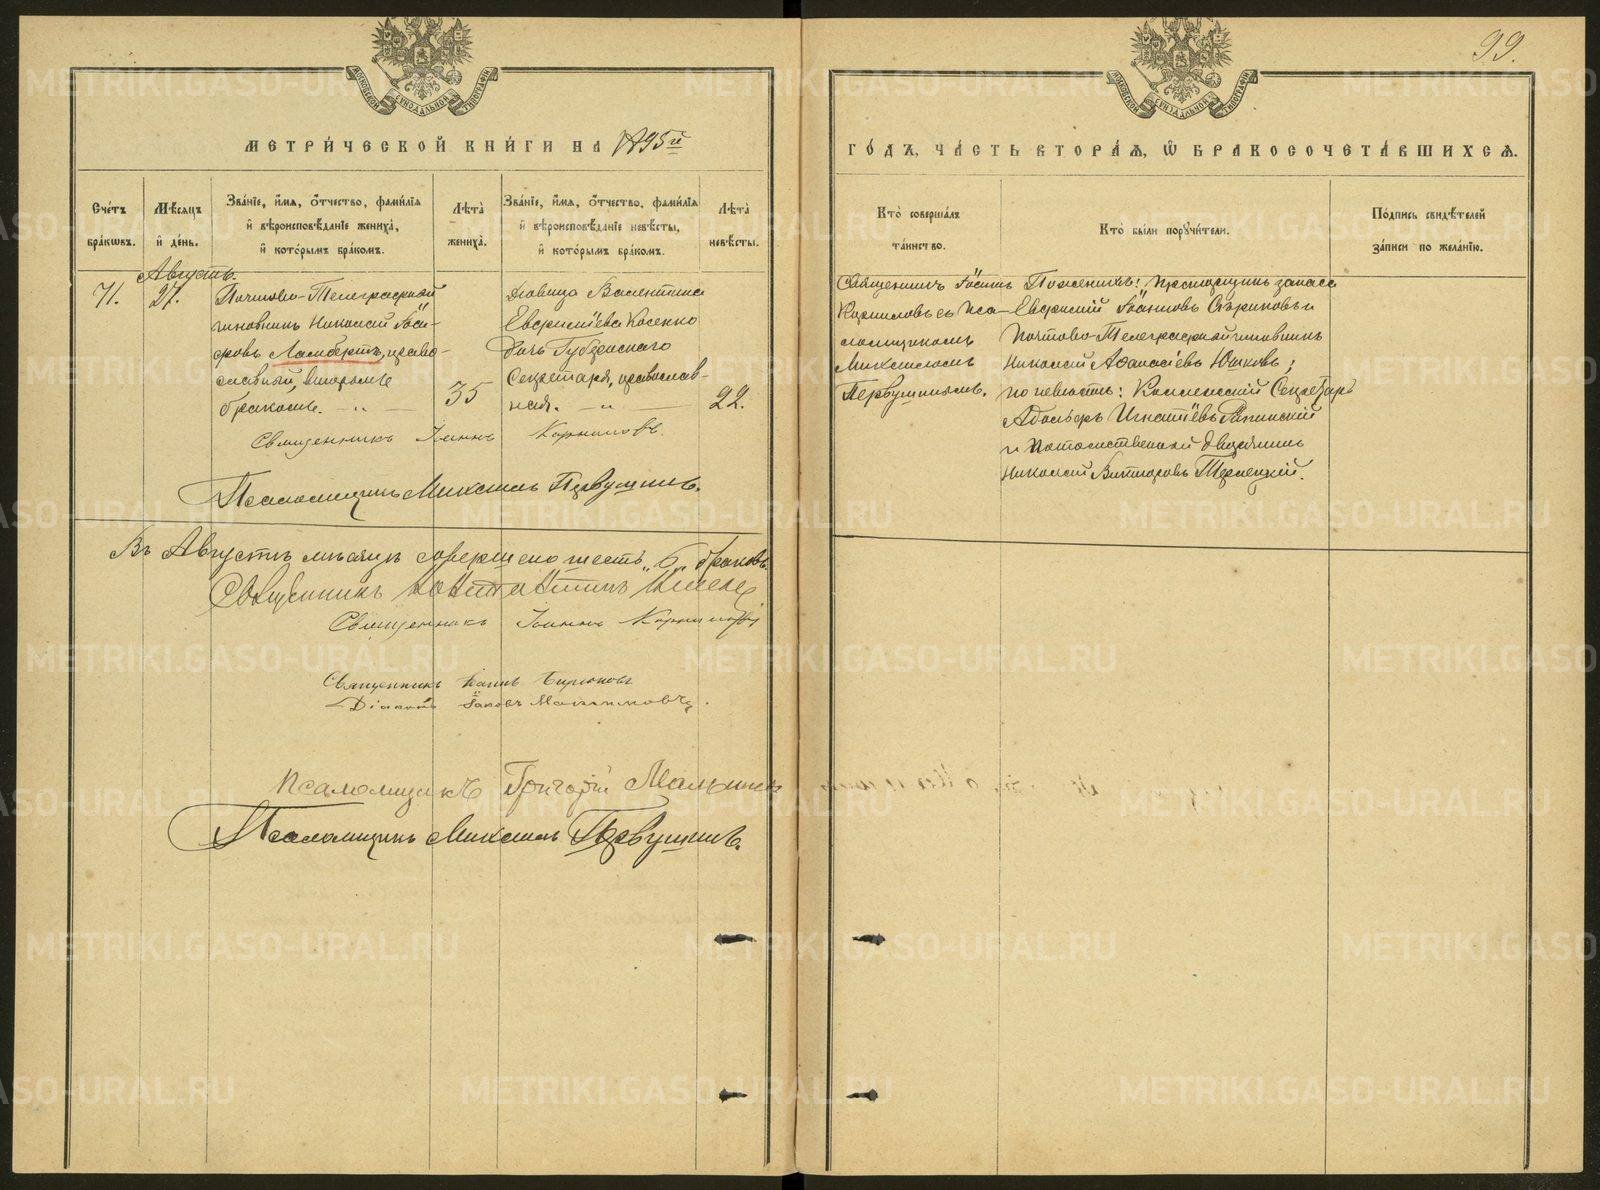 99.
МОСКОВСКОЙ СѶНОДАЛЬНОЙ ТИПОГРАФІИ
МОСКОВСКОЙ СѶНОДАЛЬНОЙ ТИПОГРАФІИ
МЕТРИ́ЧЕСКОЙ КНИ́ГИ НА 1895й
ГО́ДЪ, ЧА́СТЬ ВТОРА́Я, Ѡ БРАКОСОЧЕТА́ВШИХСЯ.
Сче́тъ бра́кѡвъ.
Мѣ́сяцъ и́ де́нь.
Зва́нїе, и́мя, ѻ҆́тчество, фами́лїя и́ вѣроисповѣ́данїе жениха̀, и́ кото́рымъ бра́комъ.
Лѣ́та̀ жениха̀.
Зва́нїе, и́мя, ѻ҆́тчество, фами́лїя и́ вѣроисповѣ́данїе невѣ́сты, и́ кото́рымъ бра́комъ.
Лѣ́та̀ невѣ́сты.
Кто̀ соверша́лъ та́инство.
Кто̀ бы́ли порꙋчи́тели.
По́дпись свидѣ́телей за́писи по жела́нїю.
Августъ.
71.
27.
Почтово-Телеграфный
чиновникъ Николай
Ламбертъ, право-
славный, вторымъ
бракомъ. — „ —
35
Дѣвица Валентина
Косенко
дочь Губернскаго
Секретаря, православ-
ная. — „ —
22.
Священникъ Іоаннъ
Корниловъ съ пса-
ломщикомъ
Михаиломъ
Первушинымъ.
По женихѣ: прапорщикъ запаса
Іоанновъ
Почтово-Телеграфный чиновникъ
Николай Аѳанасіевъ Юшковъ;
по невѣстѣ: Коллежскій Секретарь
Адольфъ Игнатіевъ
и Потомственный дворянинъ
Николай Викторовъ Терлецкій.
Священникъ Іоаннъ Корниловъ.
Псаломщикъ Михаилъ Первушинъ.
Въ Августѣ мѣсяцѣ совершено шесть „6„ браковъ.
Священникъ Константинъ
Священникъ Іоаннъ Корниловъ
Священникъ Іоаннъ Бирюковъ
Діаконъ Іаковъ Максимовъ.
Псаломщикъ Григорій Малышинъ
Псаломщикъ Михаилъ Первушинъ.
METRIKI.GASO-URAL.RU